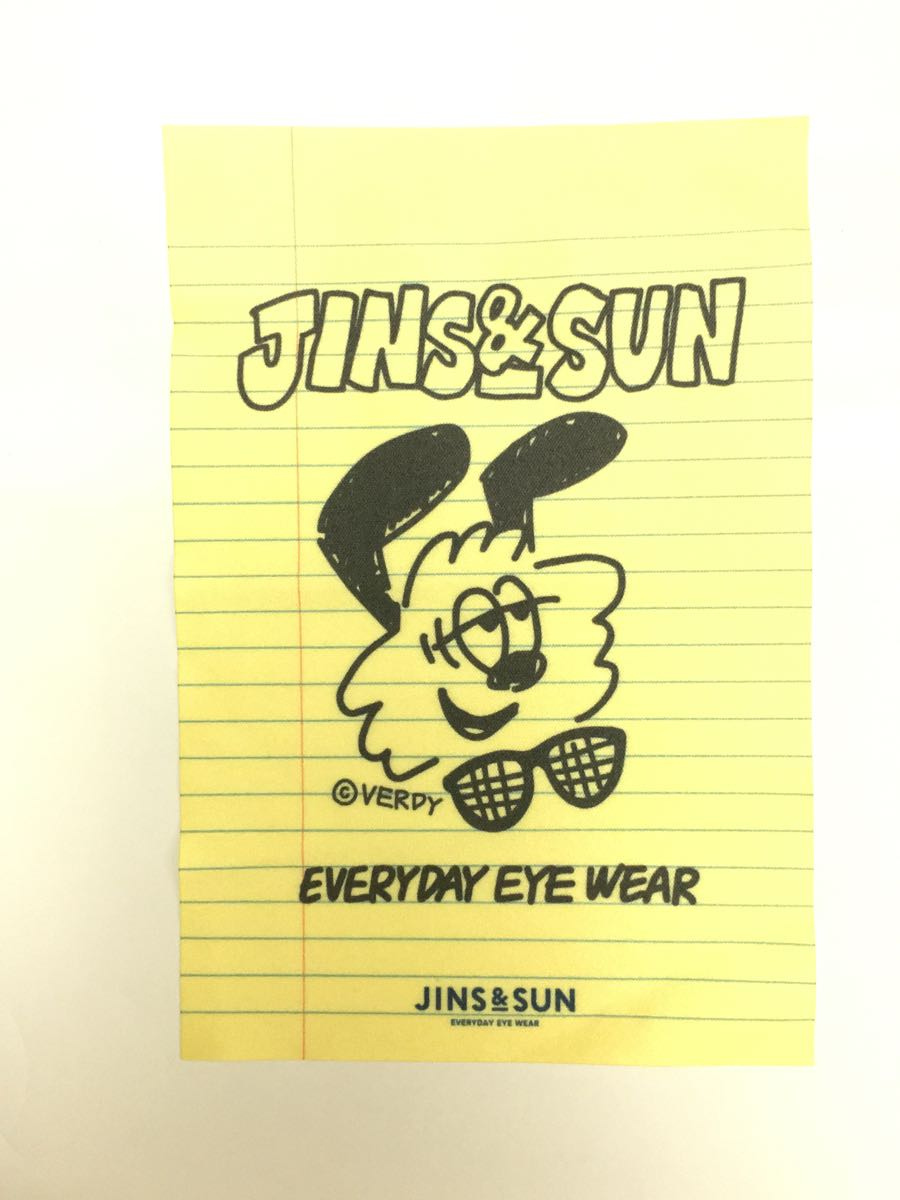 JINS&SUN
©VERDY
EVERYDAY EYE WEAR
JINS&SUN
EVERYDAY EYE WEAR